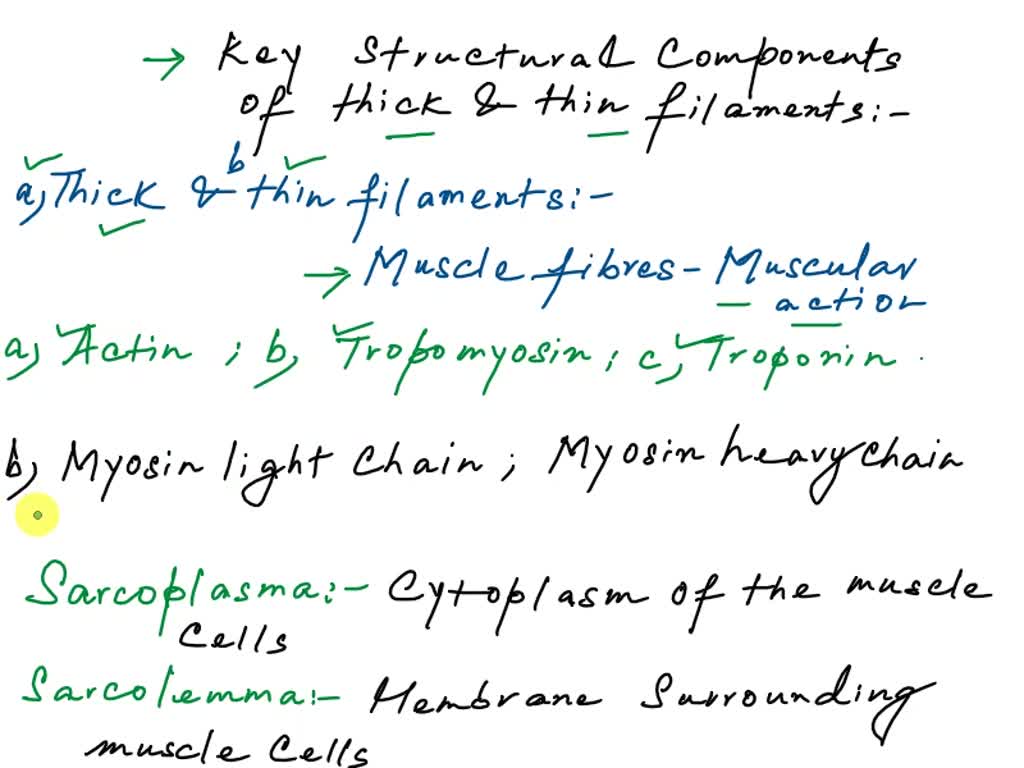 → Key Structural Components
of thick & thin filaments:-
a, Thick & b thin filaments:-
→ Muscle fibres - Muscular
action
a, Actin ; b, Tropomyosin ; c, Troponin .
b, Myosin light chain ; Myosin heavy chain
Sarcoplasma:- Cytoplasm of the muscle
Cells
Sarcolemma:- Membrane Surrounding
muscle Cells